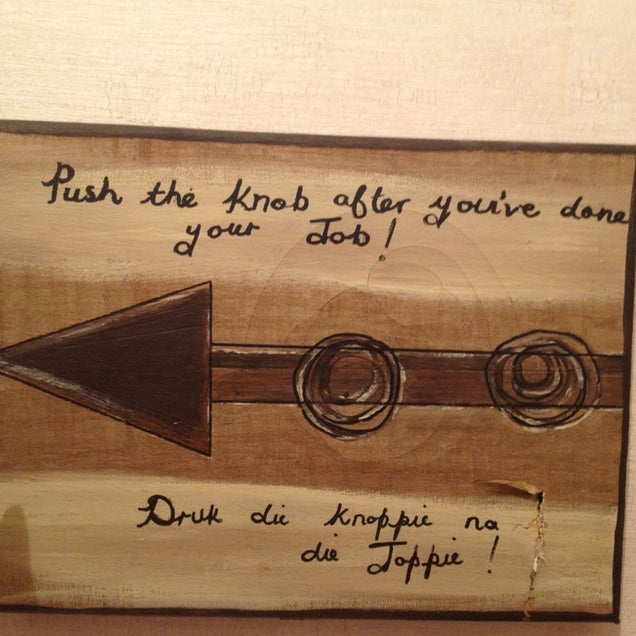 Push the Knob after you've done
your Job!
Druk die Knoppie na
die Joppie!